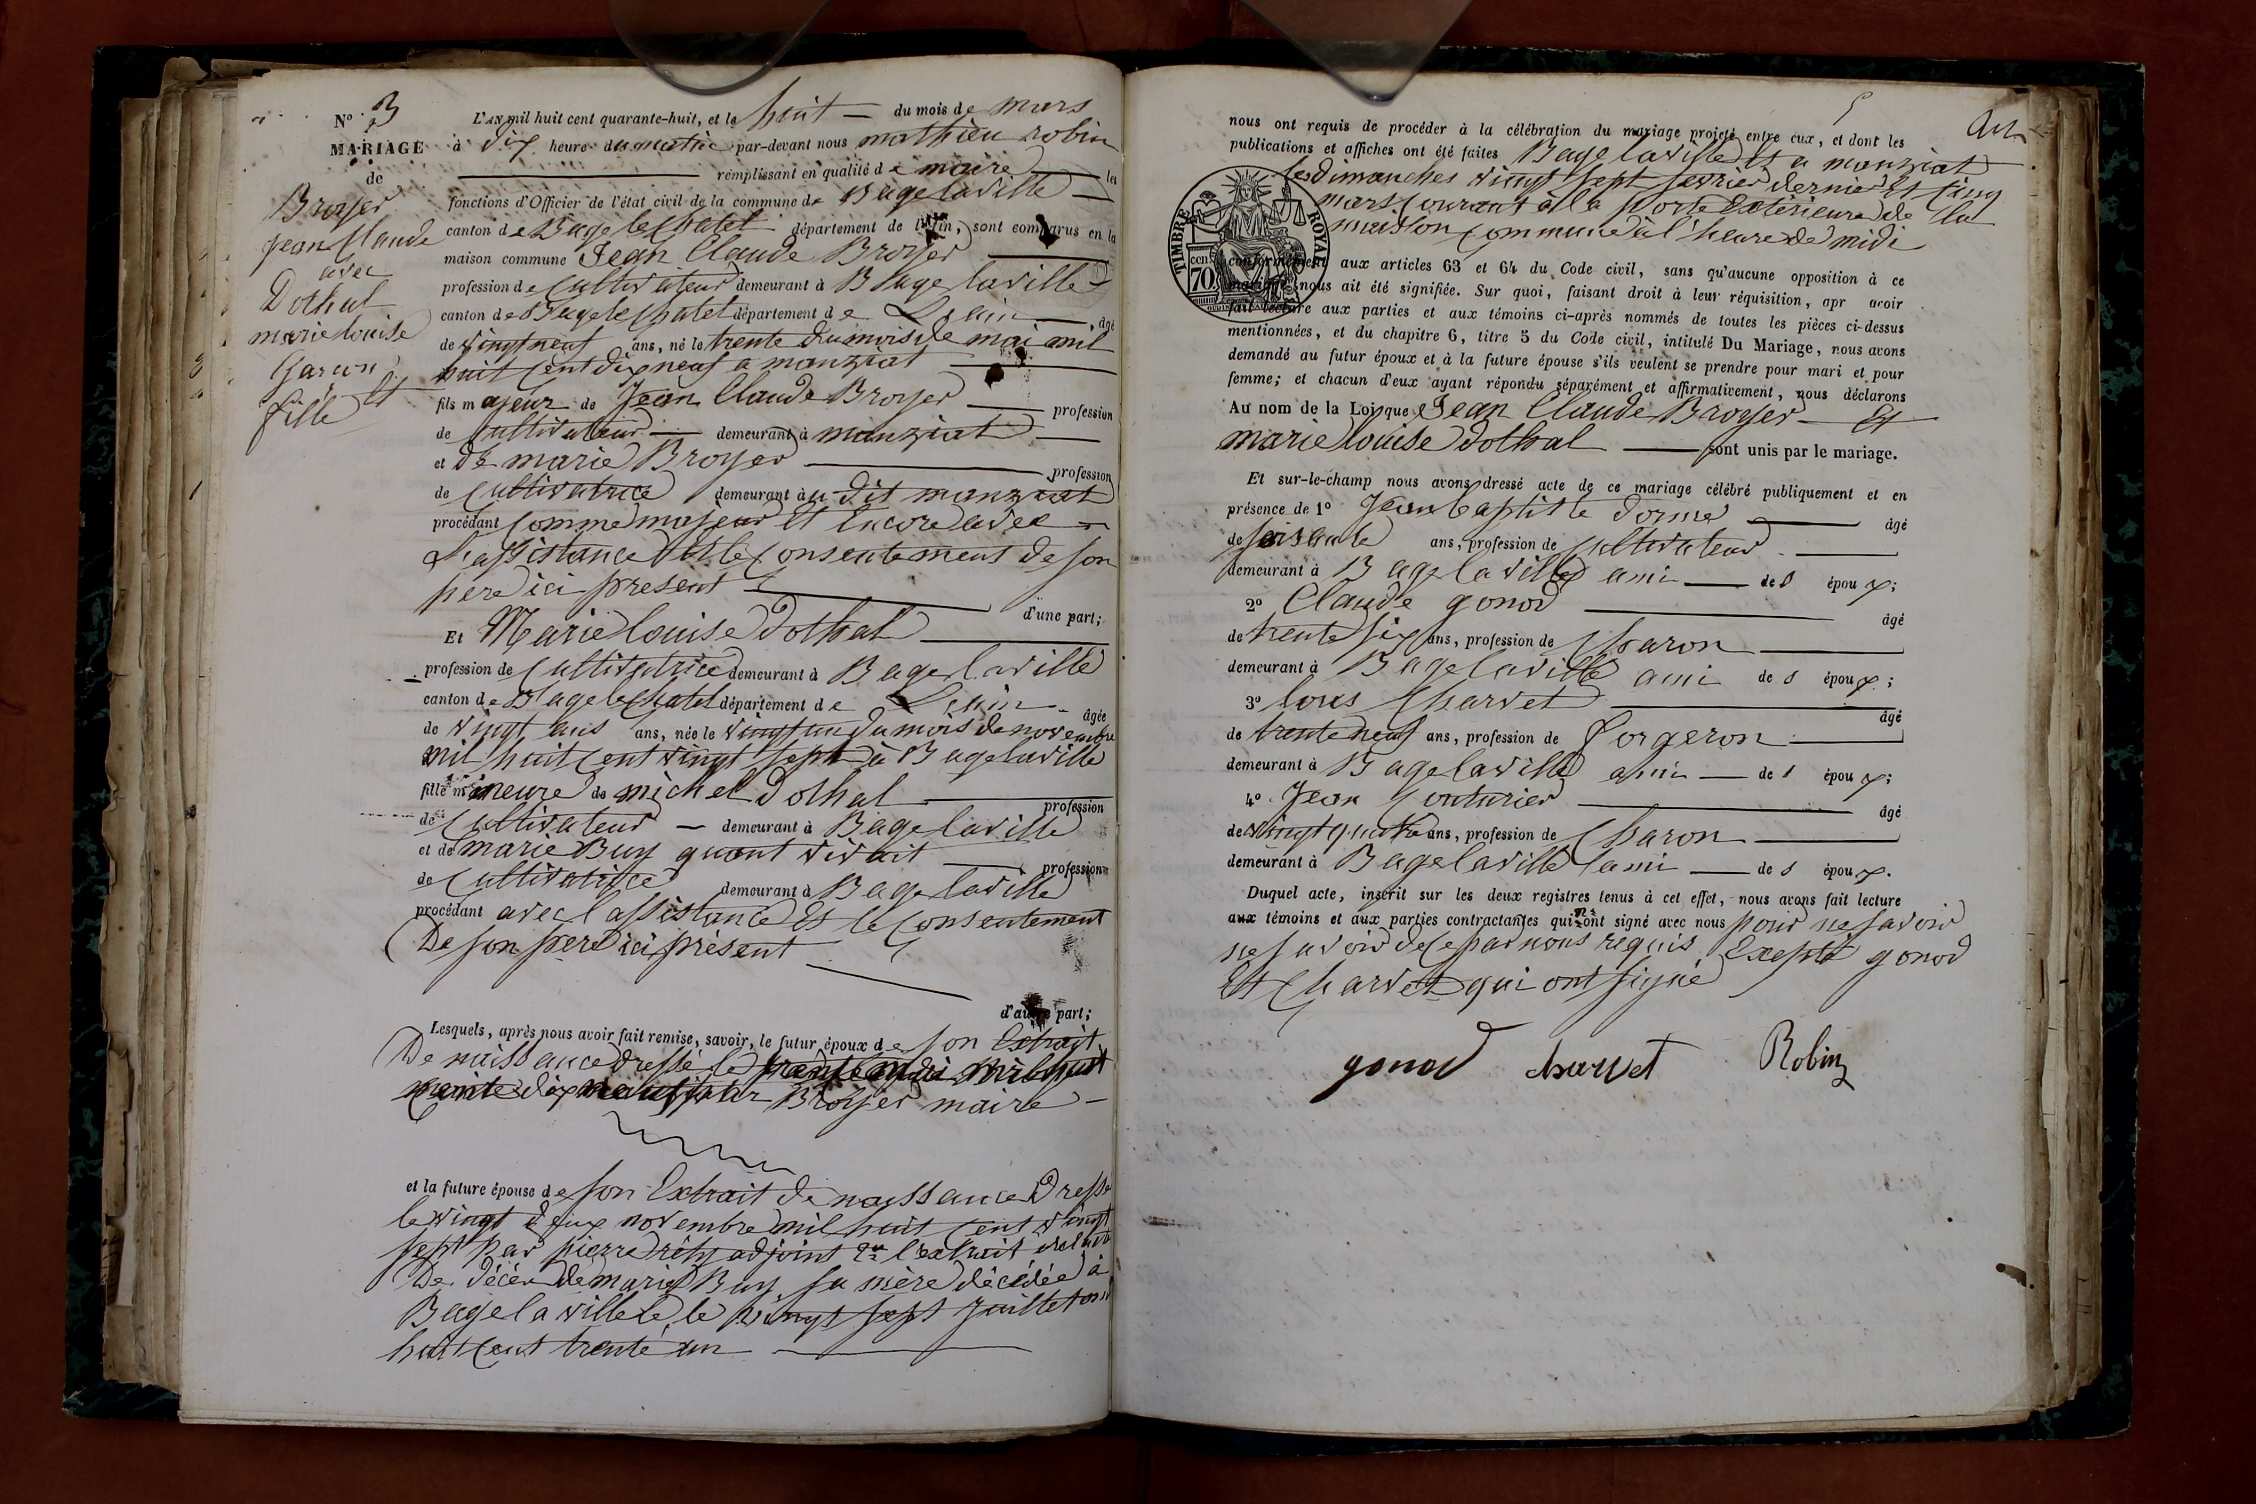 N° 3
MARIAGE
de
Broyer
jean Claude
avec
Dothal
marie louise
Garçon
et
fille
L'AN mil huit cent quarante-huit, et le huit du mois de mars
à dix heure du matin par-devant nous mathieu robin
remplissant en qualité de maire les
fonctions d'Officier de l'état civil de la commune de Bage laville
canton de Bage le Chatel département de l'Ain, sont comparus en la
maison commune Jean Claude Broyer
profession de Cultivateur demeurant à Bage laville
canton de Bage le Chatel département de L'ain, âgé
de vingt neuf ans, né le trente du mois de mai mil
huit Cent dix neuf a manziat
fils majeur de Jean Claude Broyer profession
de Cultivateur demeurant à manziat
et de marie Broyer profession
de Cultivatrice demeurant au dit manziat
procédant Comme majeur et Encore avec
L'assistance et le Consentement de son
pere ici present
d'une part;
Et Marie louise Dothal
profession de Cultivatrice demeurant à Bage laville
canton de Bage le Chatel département de L'ain âgée
de vingt ans ans, née le vingt un du mois de novembre
mil huit Cent vingt sept à Bage laville
fille mineure de michel Dothal profession
de Cultivateur demeurant à Bage laville
et de marie Buy quant vivait profession
de Cultivatrice demeurant à Bage laville
procédant avec l'assistance Et le Consentement
De son pere ici présent
d'autre part;
Lesquels, après nous avoir fait remise, savoir, le futur époux de son Extrait
De naissance dressé le trente mai mil huit
dix neuf par Broyer maire
et la future épouse de son Extrait de naissance Dressé
le vingt deux novembre mil huit Cent vingt
sept par pierre adjoint 2° l'extrait
De décès De marie Buy sa mère décédée à
Bage laville le vingt sept Juillet mil
huit Cent trente un
nous ont requis de procéder à la célébration du mariage projeté entre eux, et dont les
publications et affiches ont été faites Bage laville Et a manziat
les Dimanches vingt sept fevrier dernier Et Cinq
mars Courant à la porte Extérieure de la
maison Commune à l'heure de midi
TIMBRE ROYAL
cen 70
conformément aux articles 63 et 64 du Code civil, sans qu'aucune opposition à ce
mariage nous ait été signifiée. Sur quoi, faisant droit à leur réquisition, apr avoir
fait lecture aux parties et aux témoins ci-après nommés de toutes les pièces ci-dessus
mentionnées, et du chapitre 6, titre 5 du Code civil, intitulé Du Mariage, nous avons
demandé au futur époux et à la future épouse s'ils veulent se prendre pour mari et pour
femme; et chacun d'eux ayant répondu séparément et affirmativement, nous déclarons
Au nom de la Loi, que Jean Claude Broyer Et
marie louise Dothal sont unis par le mariage.
Et sur-le-champ nous avons dressé acte de ce mariage célébré publiquement et en
présence de 1° Jean baptiste dorme âgé
de soixante ans, profession de Cultivateur
demeurant à Bage laville ami de s époux;
2° Claude gonod âgé
de trente six ans, profession de Charon
demeurant à Bage laville ami de s époux;
3° louis Charvet âgé
de trente neuf ans, profession de Forgeron
demeurant à Bage laville ami de s époux;
4° Jean Couturier âgé
de vingt quatre ans, profession de Charon
demeurant à Bage laville ami de s époux.
Duquel acte, inscrit sur les deux registres tenus à cet effet, nous avons fait lecture
aux témoins et aux parties contractantes qui n'ont signé avec nous pour ne savoir
ne savoir de ce par nous requis Excepté gonod
Et Charvet qui ont signé
gonod charvet Robin